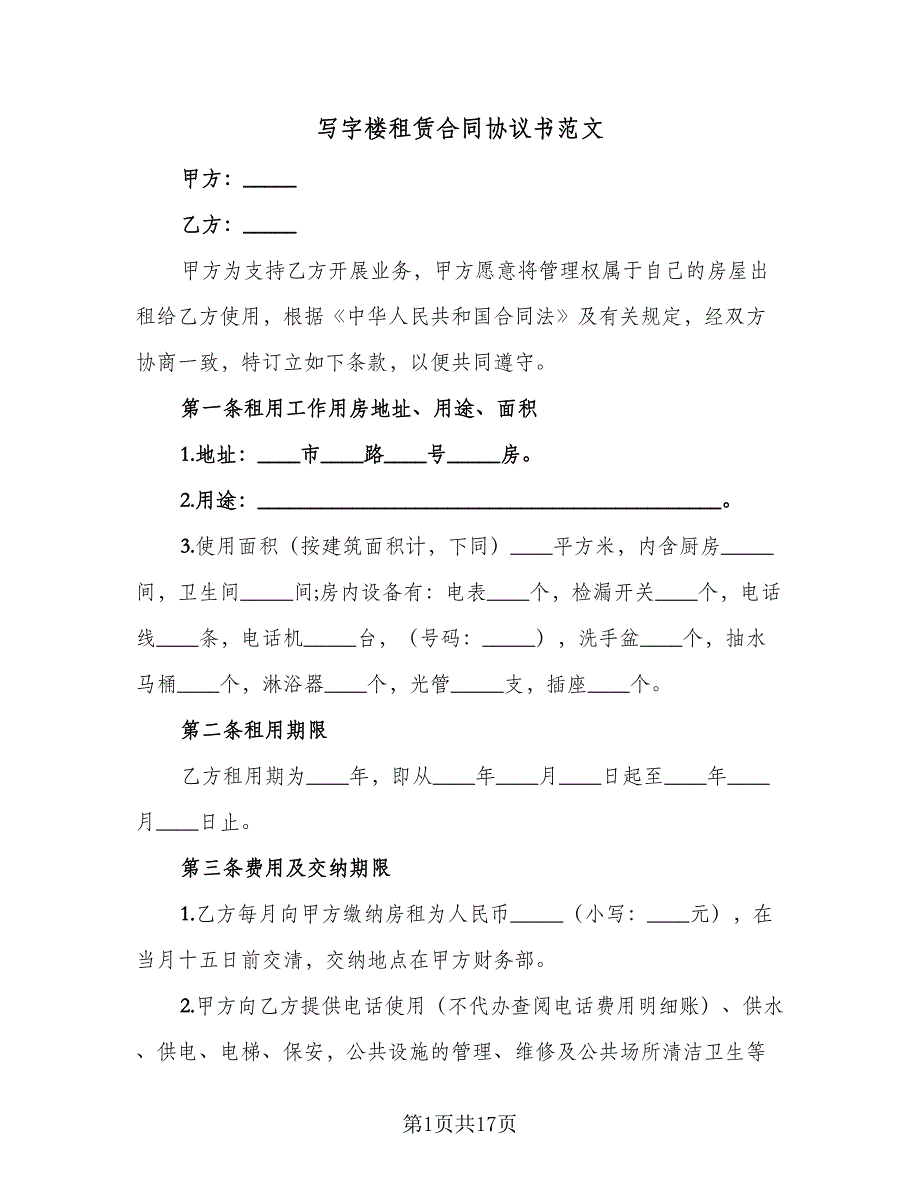 写字楼租赁合同协议书范文
甲方：_____
乙方：_____
甲方为支持乙方开展业务，甲方愿意将管理权属于自己的房屋出
租给乙方使用，根据《中华人民共和国合同法》及有关规定，经双方
协商一致，特订立如下条款，以便共同遵守。
第一条租用工作用房地址、用途、面积
1.地址：____市____路____号_____房。
2.用途：____________________________________________。
3.使用面积（按建筑面积计，下同）____平方米，内含厨房_____
间，卫生间_____间;房内设备有：电表____个，检漏开关____个，电话
线____条，电话机_____台，（号码：_____），洗手盆____个，抽水
马桶____个，淋浴器____个，光管_____支，插座____个。
第二条租用期限
乙方租用期为____年，即从____年____月____日起至____年____
月____日止。
第三条费用及交纳期限
1.乙方每月向甲方缴纳房租为人民币_____（小写：____元），在
当月十五日前交清，交纳地点在甲方财务部。
2.甲方向乙方提供电话使用（不代办查阅电话费用明细账）、供水
、供电、电梯、保安，公共设施的管理、维修及公共场所清洁卫生等
第1页共17页